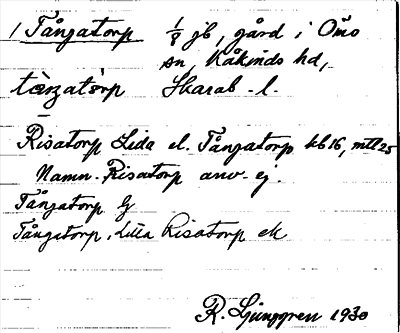 1 Tångatorp 1/8 jb, gård i Ömo
sn, Kåkinds hd,
tàŋatòrp Skarab. l.
Risatorp Lida el. Tångatorp kb 16, mtl 25
Namn. Risatorp anv. ej.
Tångatorp
Tångatorp, Lilla Risatorp ek
R. Ljunggren 1930